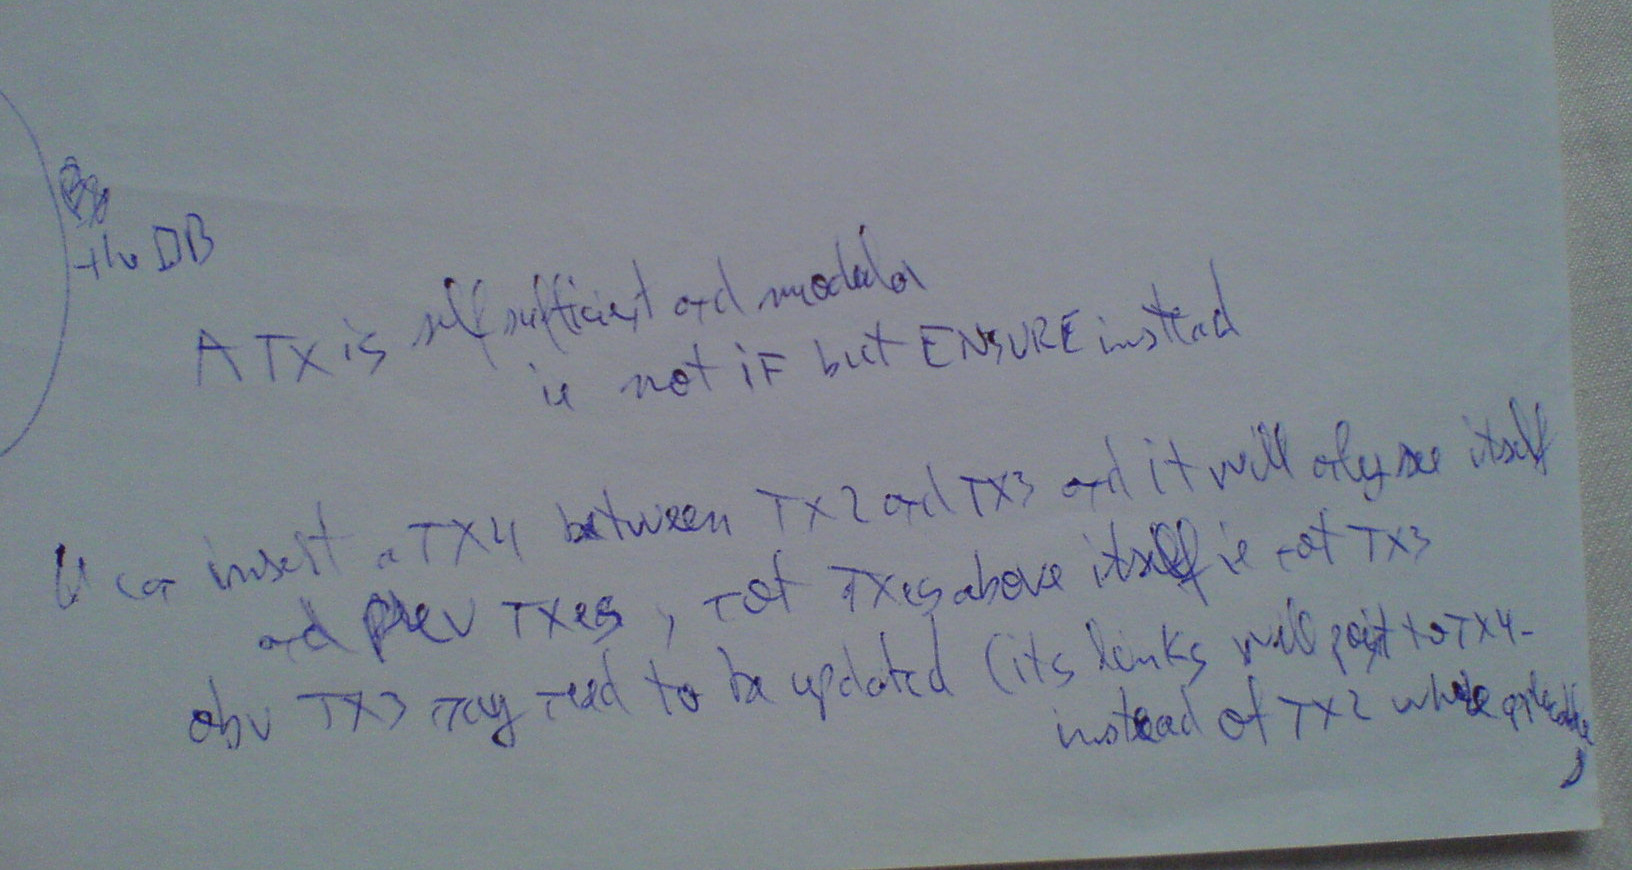 the DB
A TX is self sufficient and modular
ie not IF but ENSURE instead
U can insert a TX4 between TX2 and TX3 and it will only see itself
and prev TXes, not TXes above itself ie not TX3
obv TX3 may need to be updated (its links will point to TX4
instead of TX2 where applicable
)